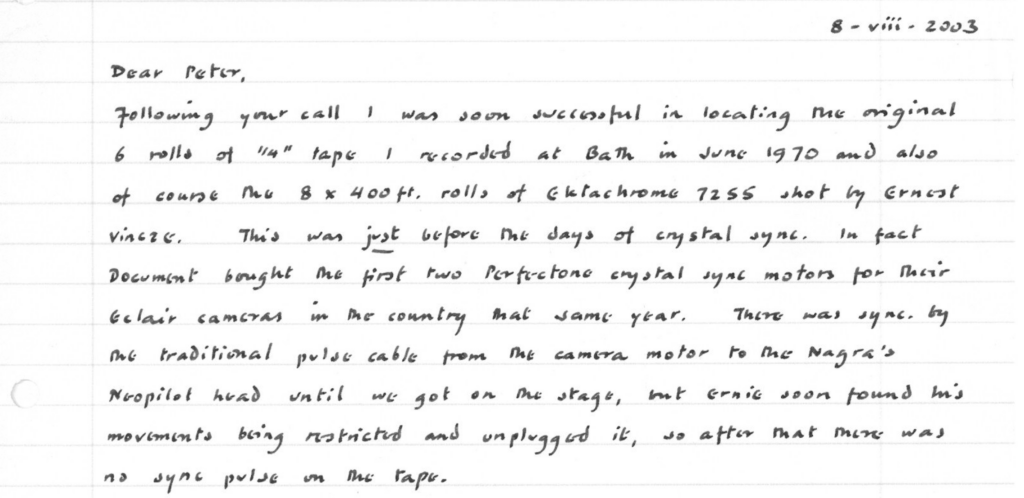 8 - viii - 2003
Dear Peter,
Following your call I was soon successful in locating the original
6 rolls of "1/4" tape I recorded at Bath in June 1970 and also
of course the 8 x 400 ft. rolls of Ektachrome 7255 shot by Ernest
Vincze. This was just before the days of crystal sync. In fact
Document bought the first two Perfectone crystal sync motors for their
Eclair cameras in the country that same year. There was sync. by
the traditional pulse cable from the camera motor to the Nagra's
Neopilot head until we got on the stage, but Ernie soon found his
movements being restricted and unplugged it, so after that there was
no sync pulse on the tape.